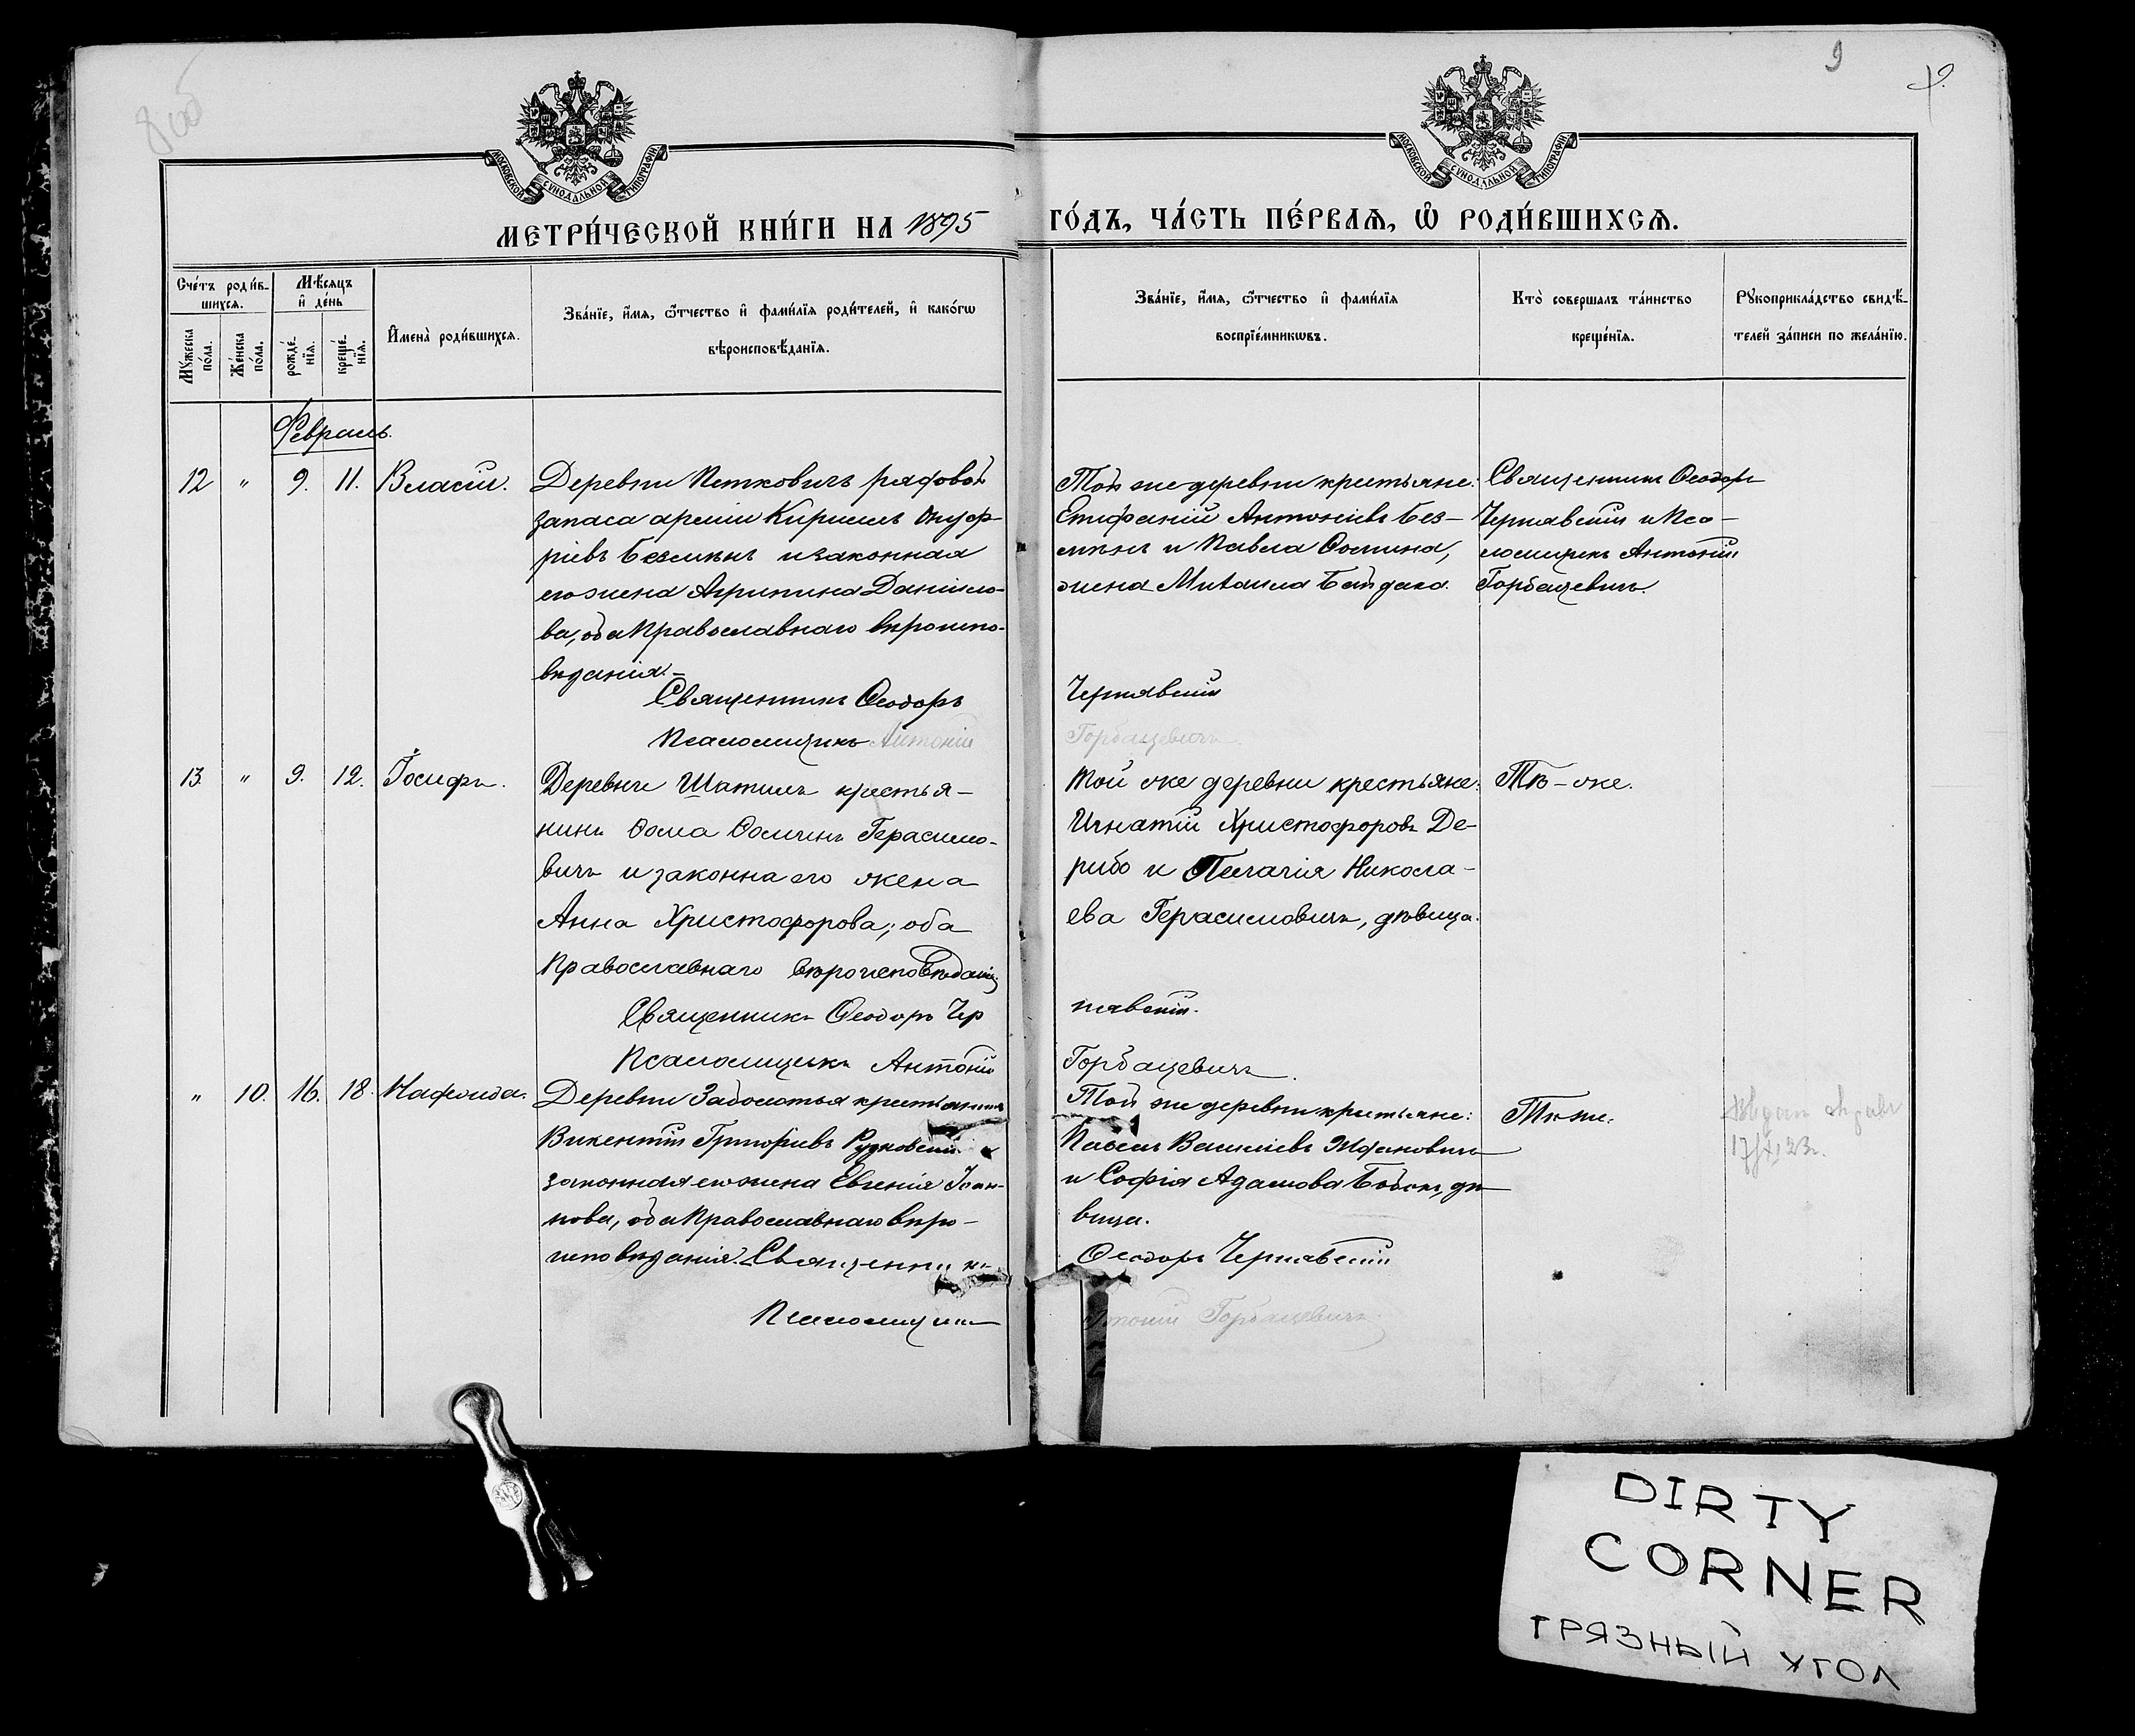 8 об
9
9.
МОСКОВСКОЙ СѴНОДАЛЬНОЙ ТИПОГРАФІИ
МОСКОВСКОЙ СѴНОДАЛЬНОЙ ТИПОГРАФІИ
МЕТРИ́ЧЕСКОЙ КНИ́ГИ НА 1895 ГО́ДЪ, ЧА́СТЬ ПЕ́РВАѦ, Ѽ РОДИ́ВШИХСѦ.
Сче́тъ роди́в-
шихся.
Мѣ́сяцъ
и҆ де́нь
Мꙋ́жеска
по́ла.
Же́нска
по́ла.
рожде́-
нїѧ.
креще́-
нїѧ.
И҆мена̀ роди́вшихсѧ.
Зва́нїе, и҆́мѧ, ѻ҆́тчество и҆ фами́лїѧ роди́телей, и҆ како́гѡ
вѣроисповѣ́данїѧ.
Зва́нїе, и҆́мѧ, ѻ҆́тчество и҆ фами́лїѧ
воспрїе́мникѡвъ.
Кто̀ соверша́лъ та́инство
креще́нїѧ.
Рꙋкоприкла́дство свидѣ́-
телей за́писи по жела́нїю.
Февраль.
12 " 9. 11. Власій.
Деревни Петковичъ рядовой
запаса арміи Кириллъ Онуф-
ріевъ Безмѣнъ и законная
его жена Агрипина Даніило-
ва, оба Православнаго вѣроиспо-
вѣданія.
Священникъ Ѳеодоръ Чернявскій
Псаломщикъ Антоній Горбацевичъ
Той же деревни крестьяне:
Епифаній Антоніевъ Без-
мѣнъ и Павла Ѳомина,
жена Михаила Байдака.
Священникъ Ѳеодоръ
Чернявскій и Пса-
ломщикъ Антоній
Горбацевичъ.
13. " 9. 12. Іосифъ.
Деревни Шатилъ крестья-
нинъ Ѳома Ѳоминъ Герасимо-
вичъ и законна его жена
Анна Христофорова; оба
Православнаго вѣроисповѣданія
Священникъ Ѳеодоръ Чернявскій.
Псаломщикъ Антоній Горбацевичъ.
Той же деревни крестьяне:
Игнатій Христофоровъ Де-
рибо и Пелагія Никола-
ева Герасимовичъ, дѣвица.
Тѣ-же.
" 10. 16. 18.
Деревни Заболотья крестьянинъ
Викентій Григоріевъ Рудковскій и
законная его жена Евгенія Іоан-
нова, оба Православнаго вѣро-
исповѣданія. Священникъ Ѳеодоръ Чернявскій
Псаломщикъ Антоній Горбацевичъ.
Той же деревни крестьяне:
Павелъ Василіевъ Ждановичъ
и Софія Адамова Бобокъ, дѣ-
вица.
Тѣ же.
17/X 23 г.
DIRTY
CORNER
ГРЯЗНЫЙ УГОЛ